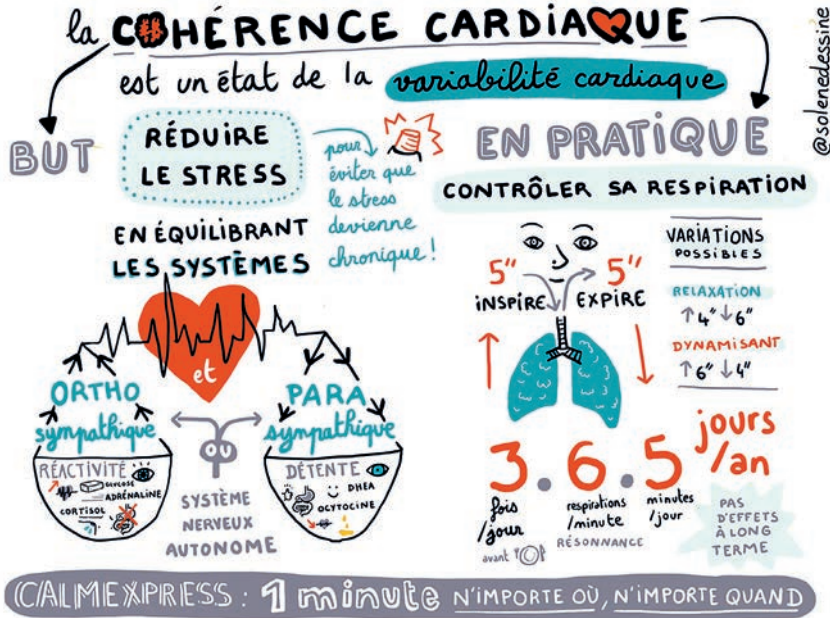 la COHÉRENCE CARDIAQUE
est un état de la variabilité cardiaque
@solenedessine
BUT
RÉDUIRE
LE STRESS
pour
éviter que
le stress
devienne
chronique !
EN ÉQUILIBRANT
LES SYSTÈMES
et
ORTHO
sympathique
PARA
sympathique
RÉACTIVITÉ
GLUCOSE
ADRÉNALINE
CORTISOL
DÉTENTE
DHEA
OCYTOCINE
ou
SYSTÈME
NERVEUX
AUTONOME
EN PRATIQUE
CONTRÔLER SA RESPIRATION
5" 5"
INSPIRE EXPIRE
VARIATIONS
POSSIBLES
RELAXATION
↑4" ↓6"
DYNAMISANT
↑6" ↓4"
3.6.5 jours
/an
fois
/jour
avant
respirations
/minute
RÉSONNANCE
minutes
/jour
PAS
D'EFFETS
À LONG
TERME
CALMEXPRESS : 1 minute N'IMPORTE OÙ, N'IMPORTE QUAND